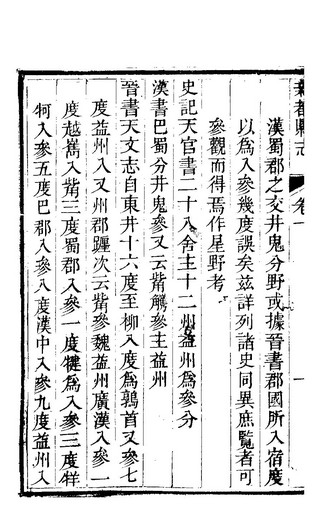 新都縣志
卷一
一
漢蜀郡之交井鬼分野或據晉書郡國所入宿度
以爲入參幾度誤矣兹詳列諸史同異庶覽者可
參觀而得焉作星野考
史記天官書二十八舍主十二州益州爲參分
漢書巴蜀分井鬼參又云觜觿參主益州
晉書天文志自東井十六度至柳八度爲鶉首又參七
度益州入又州郡躔次云觜參魏益州廣漢入參一
度越嶲入觜三度蜀郡入參一度犍爲入參三度牂
牁入參五度巴郡入參八度漢中入參九度益州入